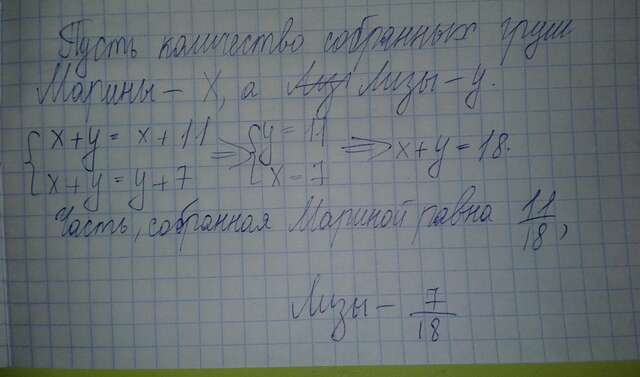 Пусть количество собранных груш
Марины - x, а Лизы - y.
{ x + y = x + 11 => { y = 11 => x + y = 18.
{ x + y = y + 7 { x = 7
Часть, собранная Мариной равна 11/18,
Лизы - 7/18